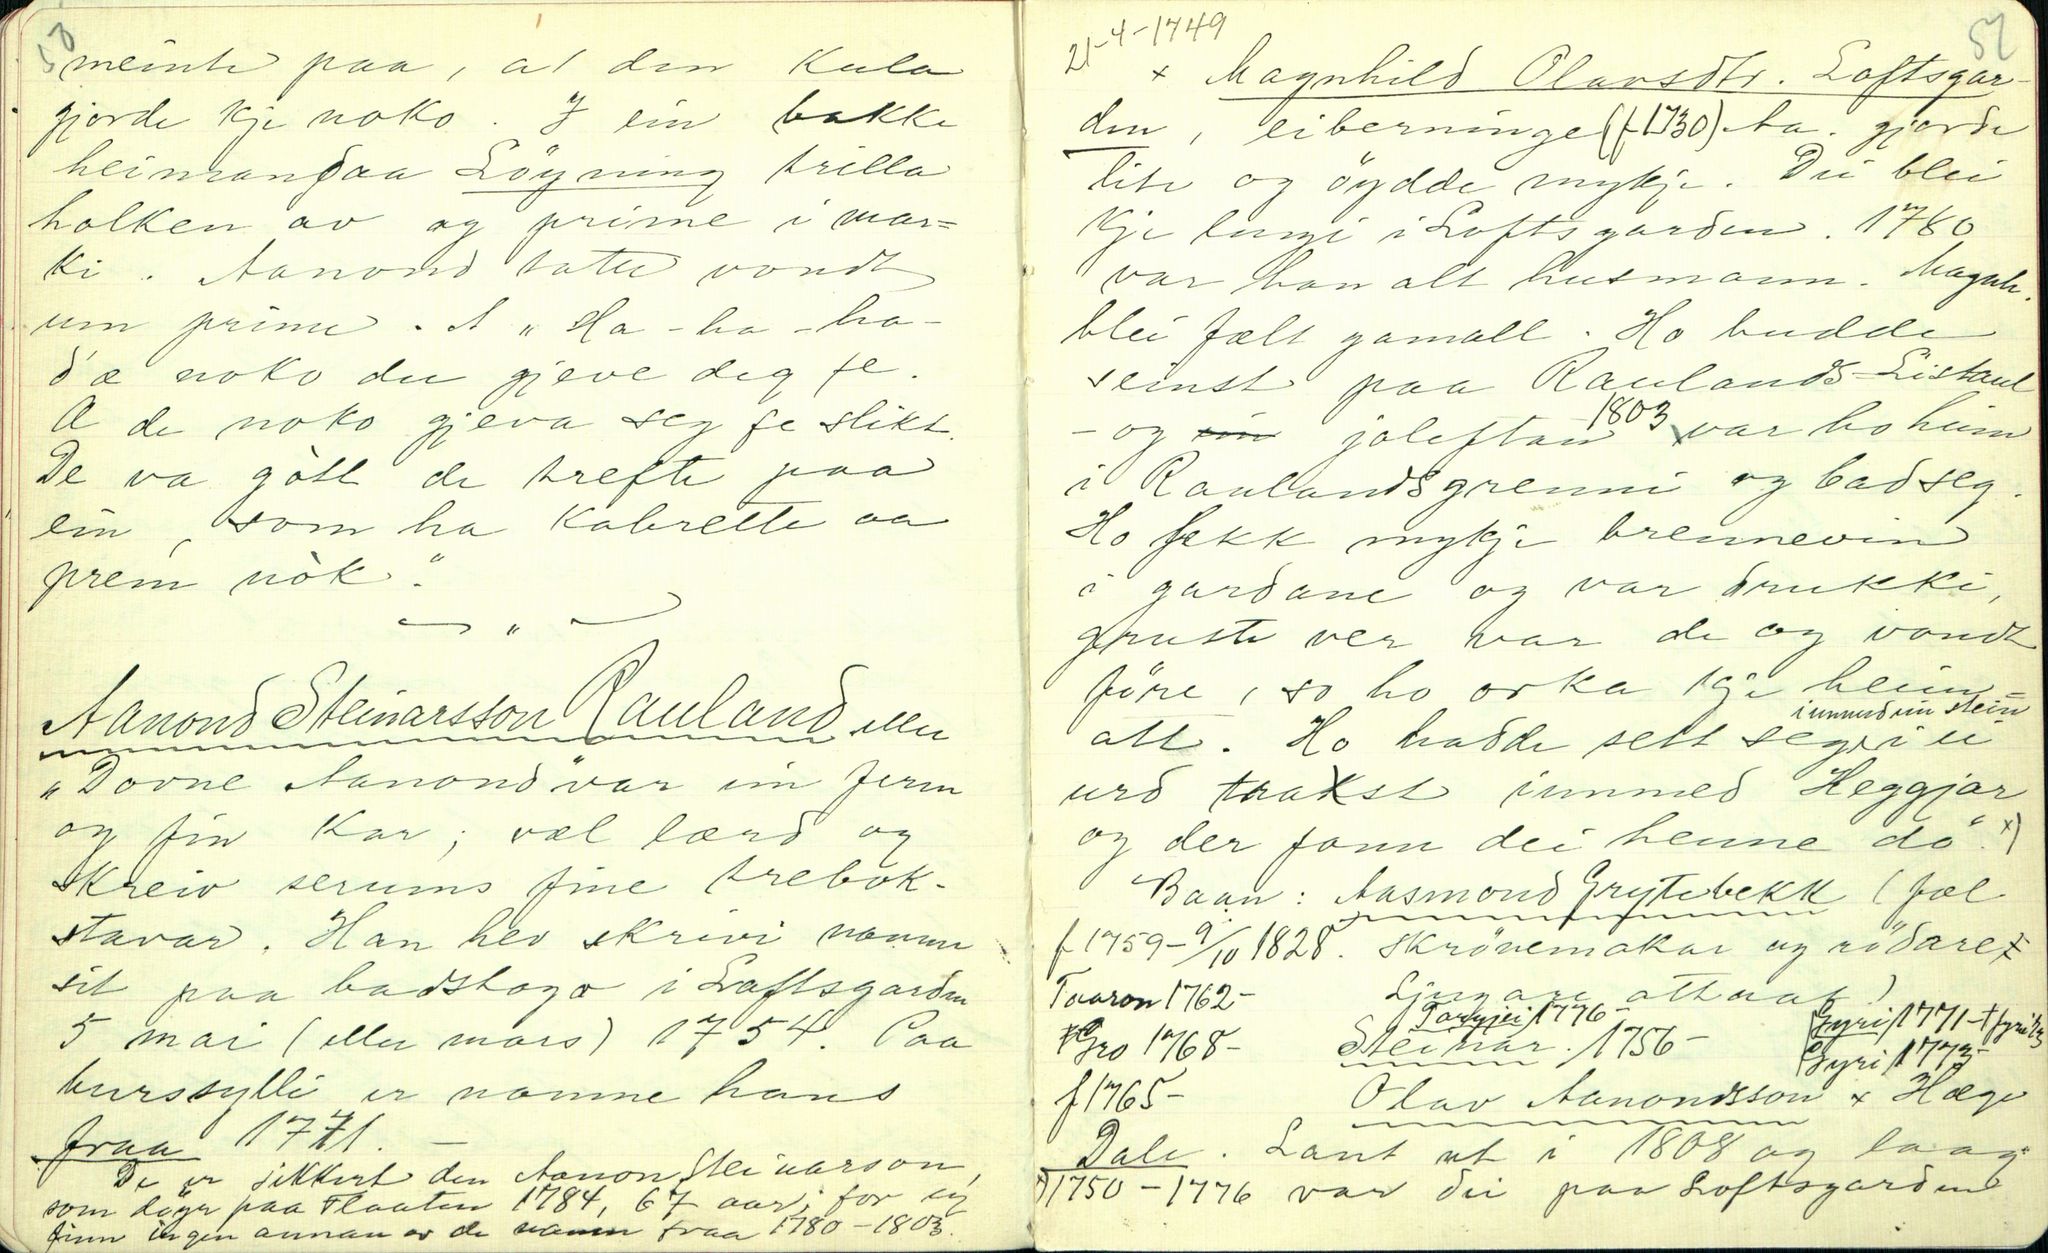 meinte paa, at den kula
gjorde kje noko. I ein bakke
heimanfaa Löyning trilla
holken av og prime i mar=
ki. Aanond totte vondt
um prime. A "Ha-ha-ha-
d'æ noko du gjeve deg fe.
A de noko gjeva seg fe slikt.
De va gòtt de trefte paa
ein, som ha kabrette aa
prem nòk."
— " —
Aanond Steinarsson Rauland eller
"Dovne Aanond" var ein ferm
og fin kar; væl lærd og
skreiv serums fine trebok-
stavar. Han hev skrivi namne
sit paa badstogo i Loftsgarden
5 mai (eller mars) 1754. Paa
burssylli er namne hans
fraa 1771. —
De er sikkert den Aanon Steinarson,
som döyr paa Flaaten 1784, 67 aar; for eg
finn ingen annan av de namn fraa 1780-1803.
57
21-4-1749
x Magnhild Olavsdtr. Loftsgar-
den, eiberninge (f1730) Aa. gjorde
lite og öydde mykje. Dei blei
kje lengi i Loftsgarden. 1780
var han alt husmann. Magnh.
blei fælt gamall. Ho budde
seinst paa Raulands-Listaul
- og joleftan 1803 var ho heim
i Raulandsgrenni og bad seg.
Ho fekk mykje brennevin
i gardane og var drukki,
gruste ver var de og vondt
före, so ho orka kje heim-
att. Ho hadde sett seg innmed ein stein i ei
urd traxst innmed Heggjar
og der fann dei henne dö". x)
Baan: Aasmond Grytebekk (fæl
f 1759-9/10 1828. skrönemakar og rödare
Taaron 1762- Ljugare attaat)
Torgjei 1776- Gyri 1771-
Gro 1768- Steinar. 1756- Gyri 1773-
f 1765- Olav Aanondsson x Hæge
Dale. Lant ut i 1808 og laag
x) 1750-1776 var dei paa Loftsgarden